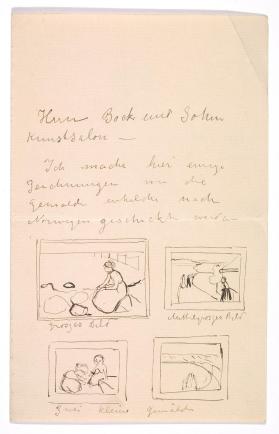 Herrn Bock und Sohn
Kunstsalon —
Ich mache hier einige
Zeichnungen um die
Gemälde nach
Norwegen geschickt
grosses Bild
Bild
zwei kleine Gemälde